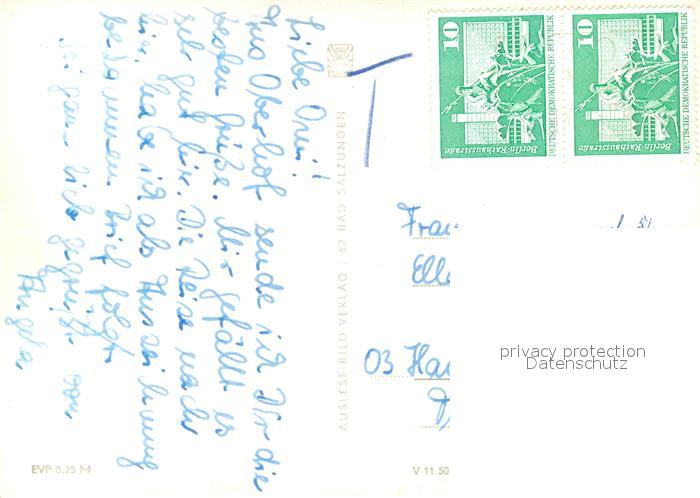 Liebe Omi!
Aus Oberhof sende ich Dir die
besten Grüße. Mir gefällt es
sehr gut hier. Die Reise nach
hier habe ich als Auszeichnung
bekommen. Brief folgt.
Sei ganz lieb gegrüßt von
Angela
AUSLESE-BILD-VERLAG / 62 BAD SALZUNGEN
EVP 0,25 M
V 11 50
10
DEUTSCHE DEMOKRATISCHE REPUBLIK
Berlin-Rathausstraße
10
DEUTSCHE DEMOKRATISCHE REPUBLIK
Berlin-Rathausstraße
Frau
Elle
03 Ha
privacy protection
Datenschutz